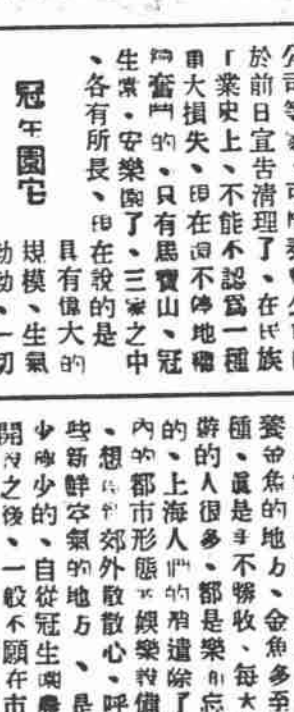 於前日宣告清理了、在民族
「業史上、不能不認爲一種
重大損失、現在還不停地
奮鬥的、只有馬寶山、冠
生園、安樂園了、三家之中
、各有所長、現在說的是
冠生園
具有偉大的
規模、生氣
勃勃、一切
養金魚的地方、金魚多至
種、眞是美不勝收、每天
遊的人很多、都是樂而忘
的、上海人們的消遣除了
內的都市形態 娛樂設備
、想 郊外散散心、呼
些新鮮空氣的地方、是
少 少的、自從冠生園農
開 之後、一般不願在市